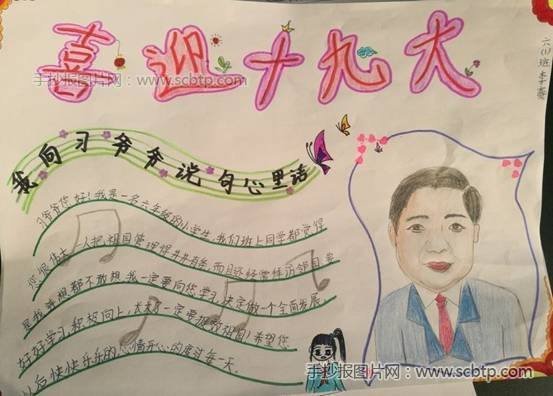 喜迎十九大
手抄报图片网:www.scbtp.com
六(1)班
我向习爷爷说句心里话
习爷爷你好!我是一名六年级的小学生,我们班上同学都觉得
您很伟大,一人把祖国管理得井井有条,而且还经常拜访邻国
是我谁想都不敢想,我一定要向您学习,决定做一个全面发展
好好学习积极向上,长大一定要报效祖国!希望您
以后快快乐乐的心情开心的度过每一天
手抄报图片网:www.scbtp.com